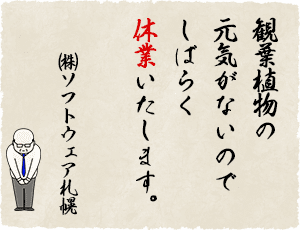 観葉植物の
元気がないので
しばらく
休業いたします。
㈱ソフトウェア札幌